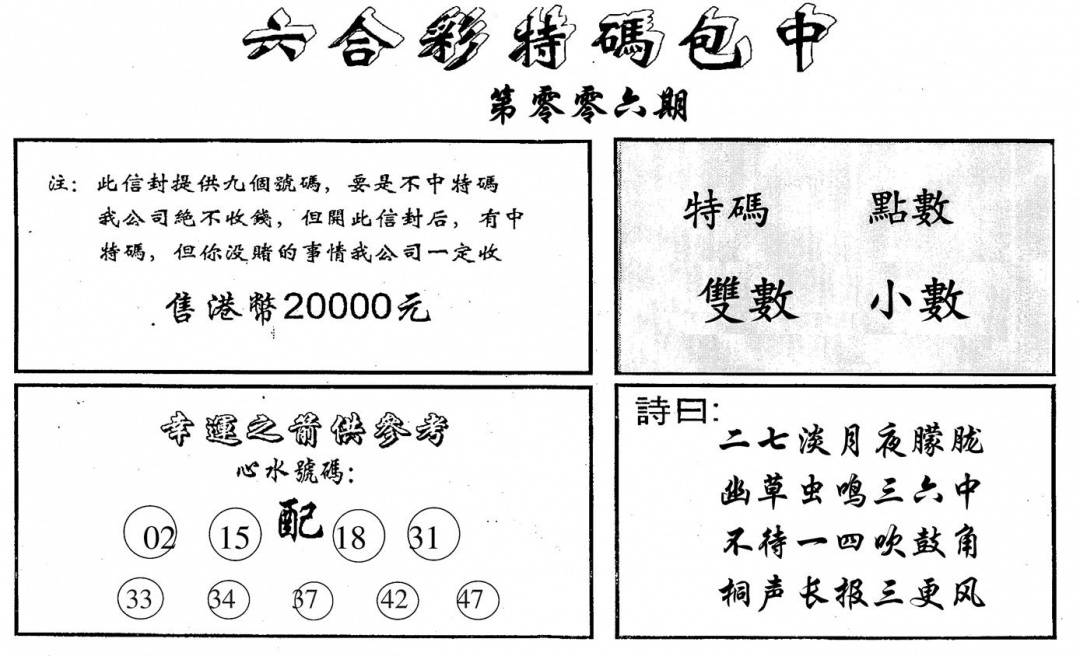 六合彩特碼包中
第零零六期
注：此信封提供九個號碼，要是不中特碼
我公司絕不收錢，但開此信封后，有中
特碼，但你没賭的事情我公司一定收
售港幣20000元
特碼 點數
雙數 小數
幸運之箭供參考
心水號碼：
配
02 15 18 31
33 34 37 42 47
詩曰：
二七淡月夜朦胧
幽草虫鸣三六中
不待一四吹鼓角
桐声长报三更风